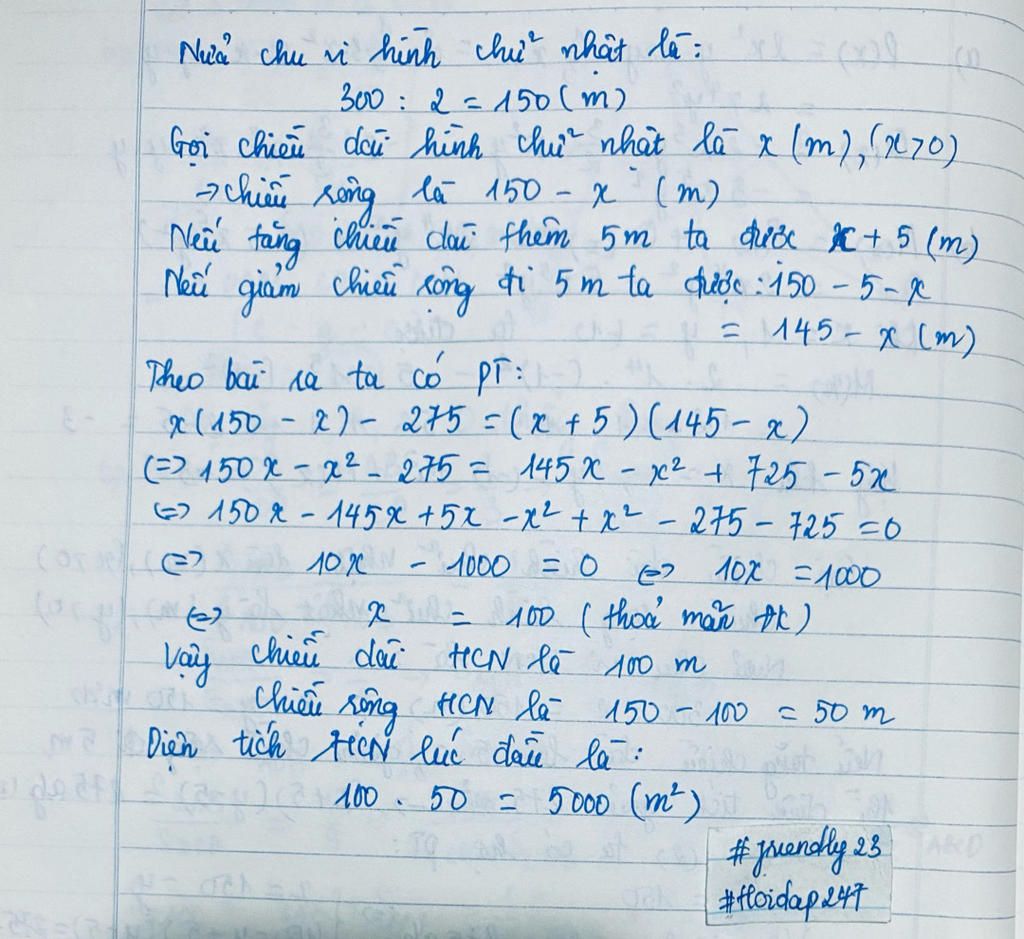 Nửa chu vi hình chữ nhật là:
300 : 2 = 150 (m)
Gọi chiều dài hình chữ nhật là x (m), (x>0)
→ chiều rộng là 150 - x (m)
Nếu tăng chiều dài thêm 5m ta được x + 5 (m)
Nếu giảm chiều rộng đi 5m ta được: 150 - 5 - x
= 145 - x (m)
Theo bài ra ta có PT:
x(150 - x) - 275 = (x + 5)(145 - x)
(=> 150x - x² - 275 = 145x - x² + 725 - 5x
<=> 150x - 145x + 5x - x² + x² - 275 - 725 = 0
<=> 10x - 1000 = 0 <=> 10x = 1000
<=> x = 100 (thoả mãn đk)
Vậy chiều dài HCN là 100 m
Chiều rộng HCN là 150 - 100 = 50 m
Diện tích HCN lúc đầu là:
100 . 50 = 5000 (m²)
#friendly23
#Hoidap247